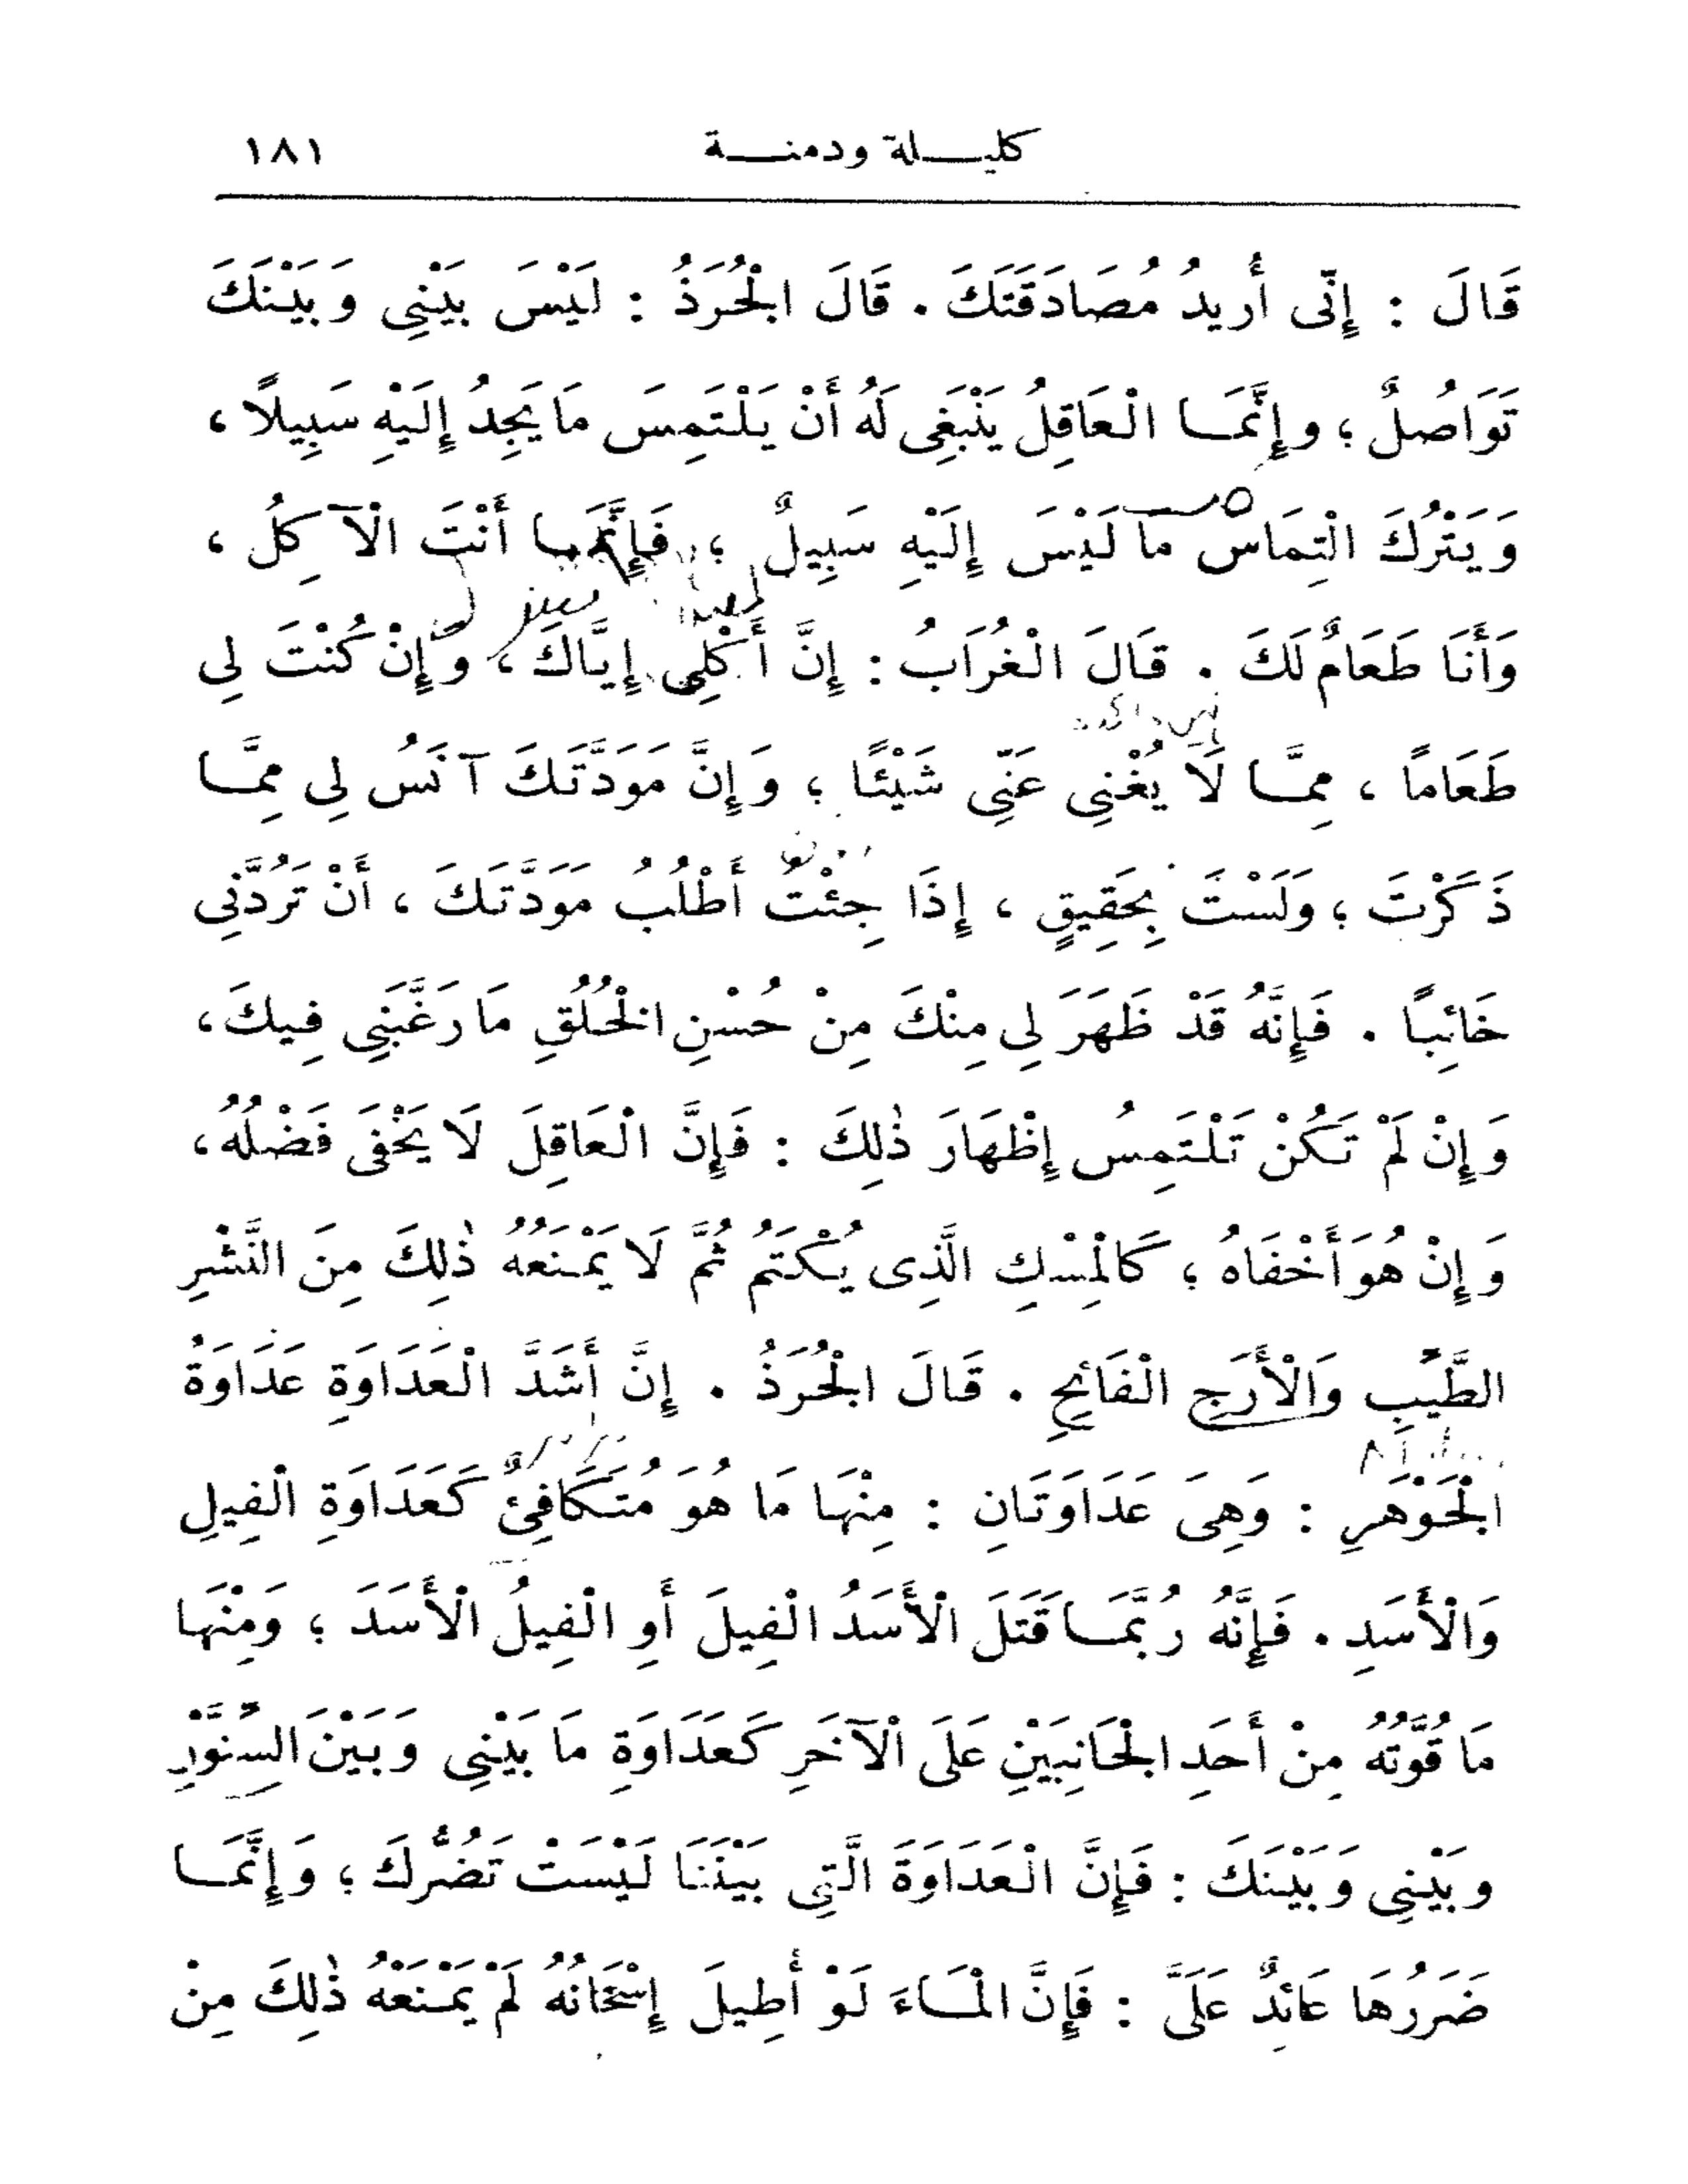 كليلة ودمنة ١٨١
قَالَ : إِنِّى أُرِيدُ مُصَادَقَتَكَ . قَالَ الْجُرَذُ : لَيْسَ بَيْنِى وَبَيْنَكَ
تَوَاصُلٌ ؛ وإِنَّمَا الْعَاقِلُ يَنْبَغِى لَهُ أَنْ يَلْتَمِسَ مَا يَجِدُ إِلَيْهِ سَبِيلًا ،
وَيَتْرُكَ الْتِمَاسَ مَا لَيْسَ إِلَيْهِ سَبِيلٌ ؛ فَإِنَّمَا أَنْتَ الْآكِلُ ،
وَأَنَا طَعَامٌ لَكَ . قَالَ الْغُرَابُ : إِنَّ أَكْلِى إِيَّاكَ ، وَإِنْ كُنْتَ لِى
طَعَاماً ، مِمَّا لَا يُغْنِى عَنِّى شَيْئًا ؛ وَإِنَّ مَوَدَّتَكَ آنَسُ لِى مِمَّا
ذَكَرْتَ ؛ وَلَسْتَ بِحَقِيقٍ ، إِذَا جِئْتُ أَطْلُبُ مَوَدَّتَكَ ، أَنْ تَرُدَّنِى
خَائِباً . فَإِنَّهُ قَدْ ظَهَرَ لِى مِنْكَ مِنْ حُسْنِ الْخُلُقِ مَا رَغَّبَنِى فِيكَ ،
وَإِنْ لَمْ تَكُنْ تَلْتَمِسُ إِظْهَارَ ذٰلِكَ : فَإِنَّ الْعَاقِلَ لَا يَخْفَى فَضْلُهُ ،
وَإِنْ هُوَ أَخْفَاهُ ؛ كَالْمِسْكِ الَّذِى يُكْتَمُ ثُمَّ لَا يَمْنَعُهُ ذٰلِكَ مِنَ النَّشْرِ
الطَّيِّبِ وَالْأَرَجِ الْفَائِحِ . قَالَ الْجُرَذُ . إِنَّ أَشَدَّ الْعَدَاوَةِ عَدَاوَةُ
الْجَوْهَرِ : وَهِىَ عَدَاوَتَانِ : مِنْهَا مَا هُوَ مُتَكَافِئٌ كَعَدَاوَةِ الْفِيلِ
وَالْأَسَدِ . فَإِنَّهُ رُبَّمَا قَتَلَ الْأَسَدُ الْفِيلَ أَوِ الْفِيلُ الْأَسَدَ ؛ وَمِنْهَا
مَا قُوَّتُهُ مِنْ أَحَدِ الْجَانِبَيْنِ عَلَى الْآخَرِ كَعَدَاوَةِ مَا بَيْنِى وَبَيْنَ السِّنَّوْرِ
وبَيْنِى وَبَيْنَكَ : فَإِنَّ الْعَدَاوَةَ الَّتِى بَيْنَنَا لَيْسَتْ تَضُرُّكَ ؛ وَإِنَّمَا
ضَرَرُهَا عَائِدٌ عَلَىَّ : فَإِنَّ الْمَاءَ لَوْ أُطِيلَ إِسْخَانُهُ لَمْ يَمْنَعْهُ ذٰلِكَ مِنْ